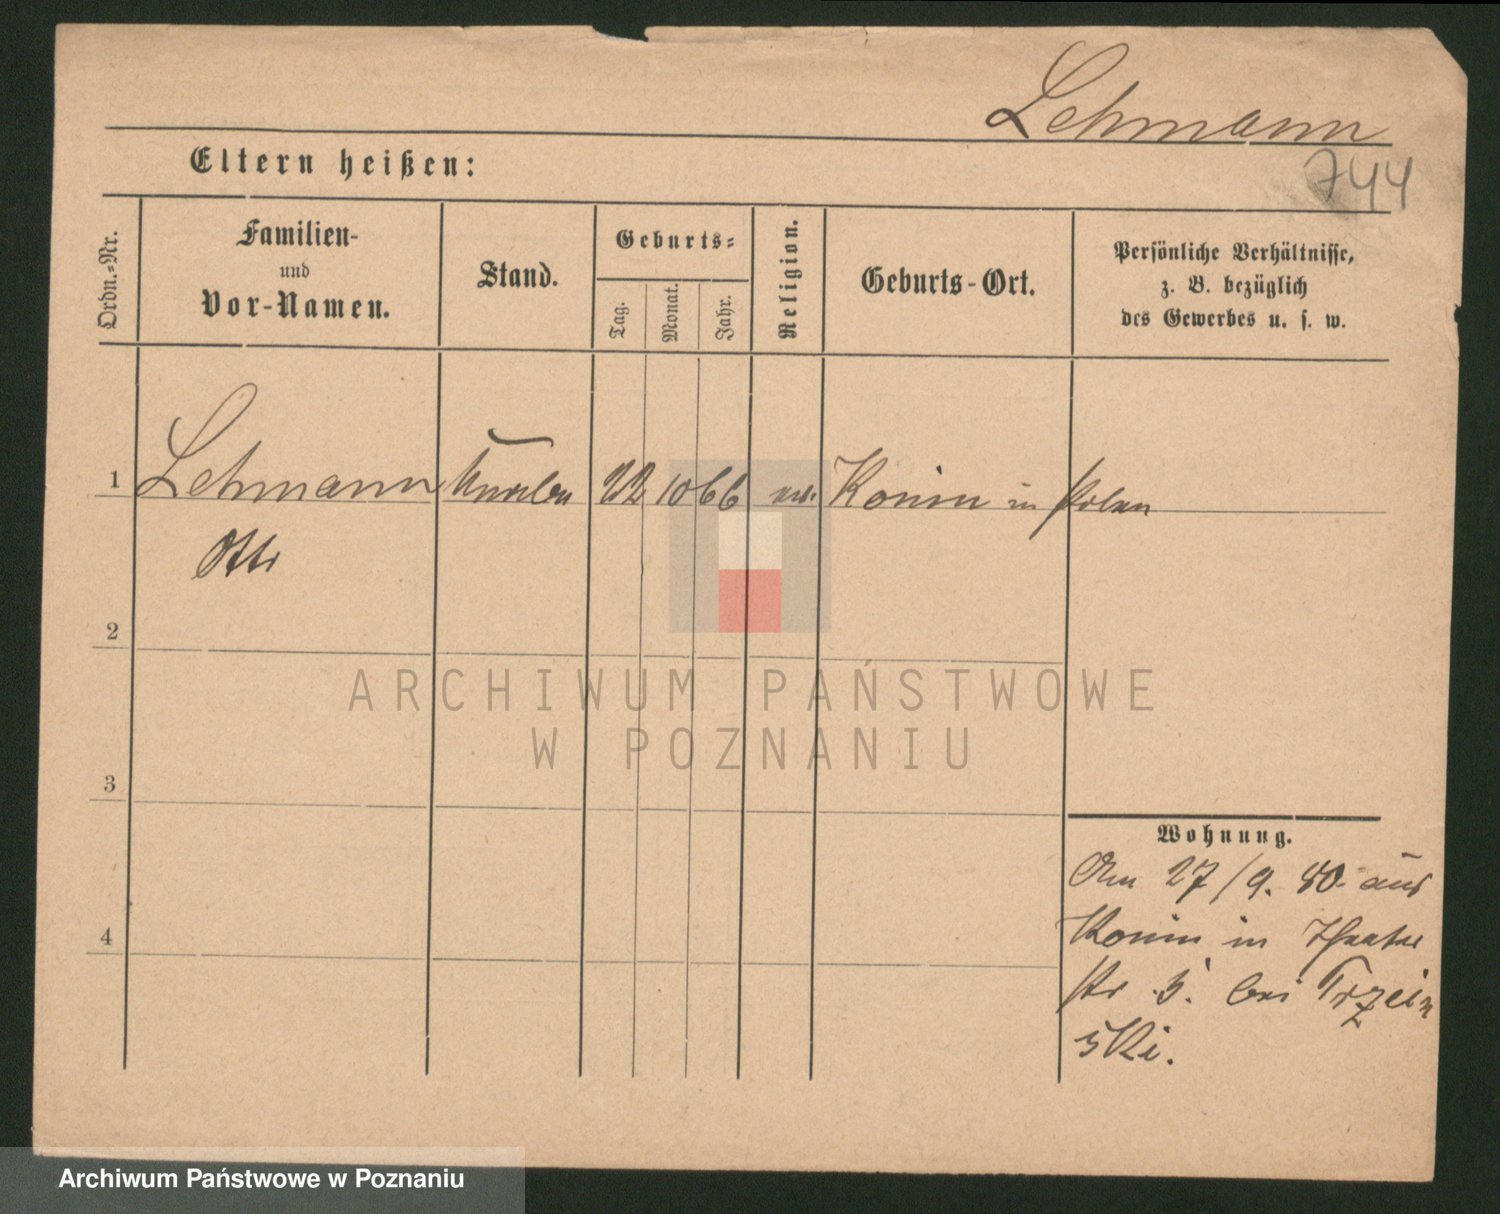 Lehmann
744
Eltern heißen:
Ordn.-Nr.
Familien-
und
Vor-Namen.
Stand.
Geburts-
Tag.
Monat.
Jahr.
Religion.
Geburts-Ort.
Persönliche Verhältnisse,
z. B. bezüglich
des Gewerbes u. s. w.
1 Lehmann 22 10 66 Konin in Polen
Otto
2
3
4
Wohnung.
Am 27/9. 80. aus
Konin in Theater
str 5. bei Trzcin
ski.
ARCHIWUM PAŃSTWOWE
W POZNANIU
Archiwum Państwowe w Poznaniu